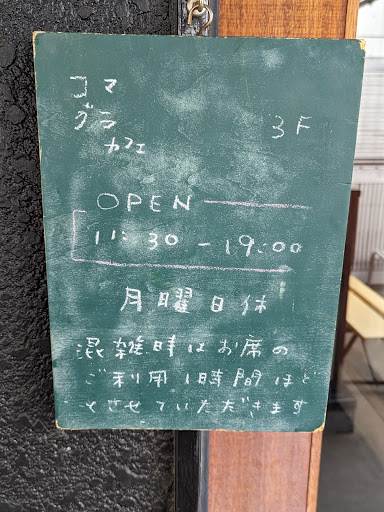 コマ
グラ 3F
カフェ
OPEN
11:30-19:00
月曜日休
混雑時はお席の
ご利用1時間ほど
とさせていただきます